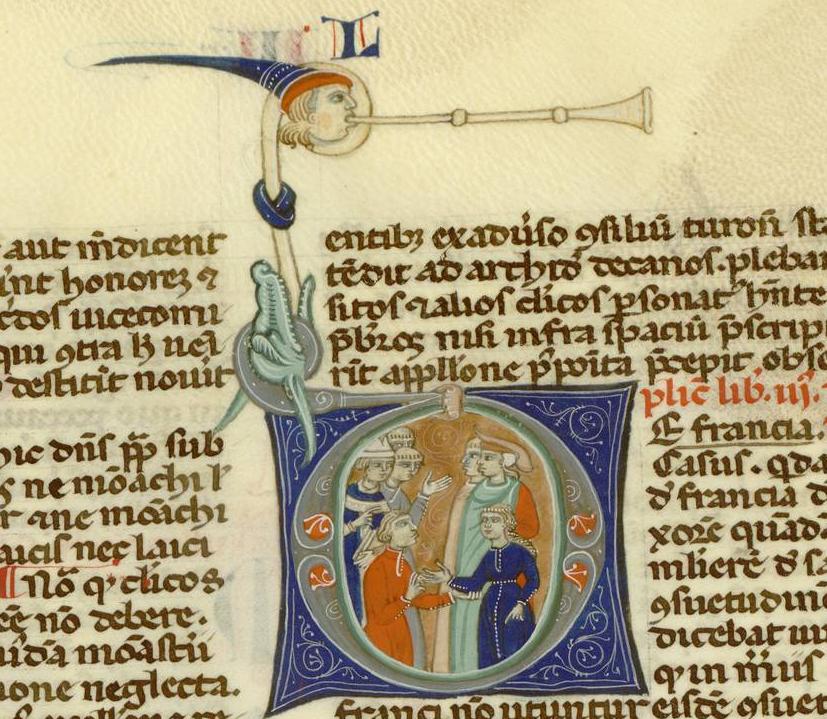 L
aut īndicent
int honorez ⁊
cdos uicecomi
qui ꝯtra h uel
destitit nouit
hic dn̄s pp̄ sub
ne mōachi l'
⁊ ne mōachi
laicis nec laici
Nō q' clicos
eē nō debere.
mōastii
ione neglecta.
entibꝫ exadūso ꝯsiliū turoñ sta
tēdit ad archid' decanos. pleban
sitos ⁊ alios clicos psonat' hn̄te
p̄bros nisi infra spaciū p̄scrip
rit appllone p̄poita p̄cepit obse
plic̄ lib. iij.
E francia.
Casus. qda
d' francia d
xorē quādā
mlierē d' sa
ꝯsuetudinē
dicebat ui
q' in m̄iis
franci nō utuntur eisdē ꝯsuet